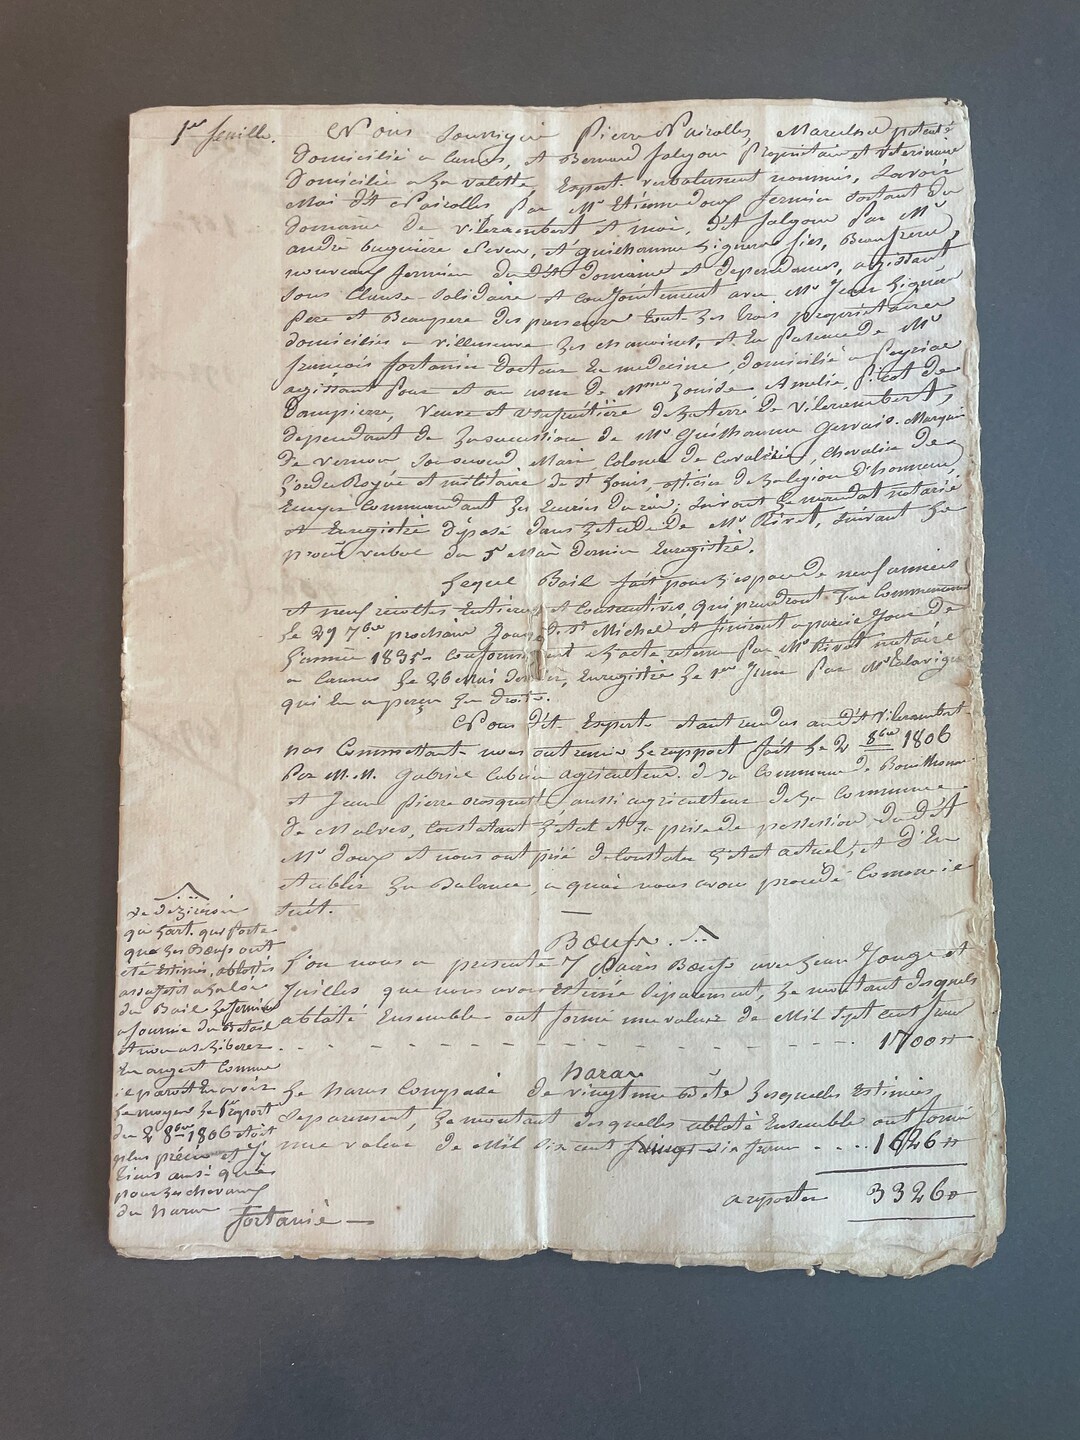 1er feuille.
Nous soussigné Pierre Nairolles, Marechal patenté
domicilié a Caunes, et Bernard falgoux Propriétaire et Veterinaire
domicilié a La valette, Expert verbalement nommés, Savoir
Moi dit Nairolles par Mr Etienne doux fermier sortant du
domaine de vilerambert et moi, dit falgoux par Mr
andre bugnière Neveu, et guilhaume Ligneres fils, Beaufrere,
nouveaux fermier du dit domaine et dependances, agissant
sous Clause Solidaire et conJointement avec Mr Jean Lignère
Pere et Beaupere des presents tout Les trois propriétaires
domiciliés a villeneuve Les chanoines, et En Presence de Mr
francois fortanier docteur En medecine, domicilié a Peyriac
agissant Pour et au nom de Mme Zonide Amelie Picot de
Dampierre, veuve et usufruitière de La terre de Vilerambert,
dependant de La sucession de Mr Guilhaume Gervais Marquis
de Vernon Son second Mari Colonel de Cavalerie, Chevalier de
L'ordre Royale et militaire de St Louis, officier de La legion d'honneur,
Ecuyer Commandant Les Ecuries du roi, suivant Le mandat notarié
et Enregistré déposé dans L'etude de Mr Rivat, suivant Le
procès verbal du 5 Mai dernier Enregistré.
Lequel Bail fait pour L'espace de neuf années
et neuf recoltes Entières et Consecutives, qui prendront Leur Commencement
Le 29 7bre prochain Jour de St Michel et finiront a pareil Jour de
L'année 1835 Conformement a L'acte retenu par Mr Rivat notaire
a Caunes Le 26 mai dernier, Enregistré Le 1er Juin par Mr
qui En a perçu Les droits.
Nous dit Expert etant rendus au dit Vilerambert
nos Commettants nous ont remis Le rapport fait Le 2 8bre 1806
Par M.M. Gabriel agriculteur de La Commune de
et Jean pierre aussi agriculteur de La Commune
de Malves, Constatant L'etat et La prise de possession du dit
Mr doux et nous ont prié de Constater L'etat actuel, et d'En
etablir La Balance, a quoi nous avons procedé Comme il
suit.
Bœufs.
L'on nous a presenté 7 Paires Bœufs avec Leur Jouge et
Juilles que nous avons Estimé Séparement, Le montant desquels
abloté Ensemble ont formé une valeur de Mil Sept Cent francs
1700
haras
Le haras Composée de vingt une Bête Lesquelles Estimés
Séparement, Le montant desquelles abloté Ensemble ont formé
une valeur de Mil Six cent vingt six francs .... 1626
a reporter 3326
qui Sart. qui porte
que Les Bœufs ont
été Estimés, ablotés
du Bail Le fermier
a fournir du Betail
et non a se Liberer
En argent Comme
il paroit En avoir
Le moyen Le raport
du 2 8bre 1806 etoit
plus précis et J'y
tiens ausi que
pour Les chevaux
du haras
fortanié